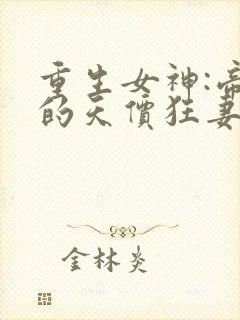 重生女神:帝
的天價狂妻
金林炎